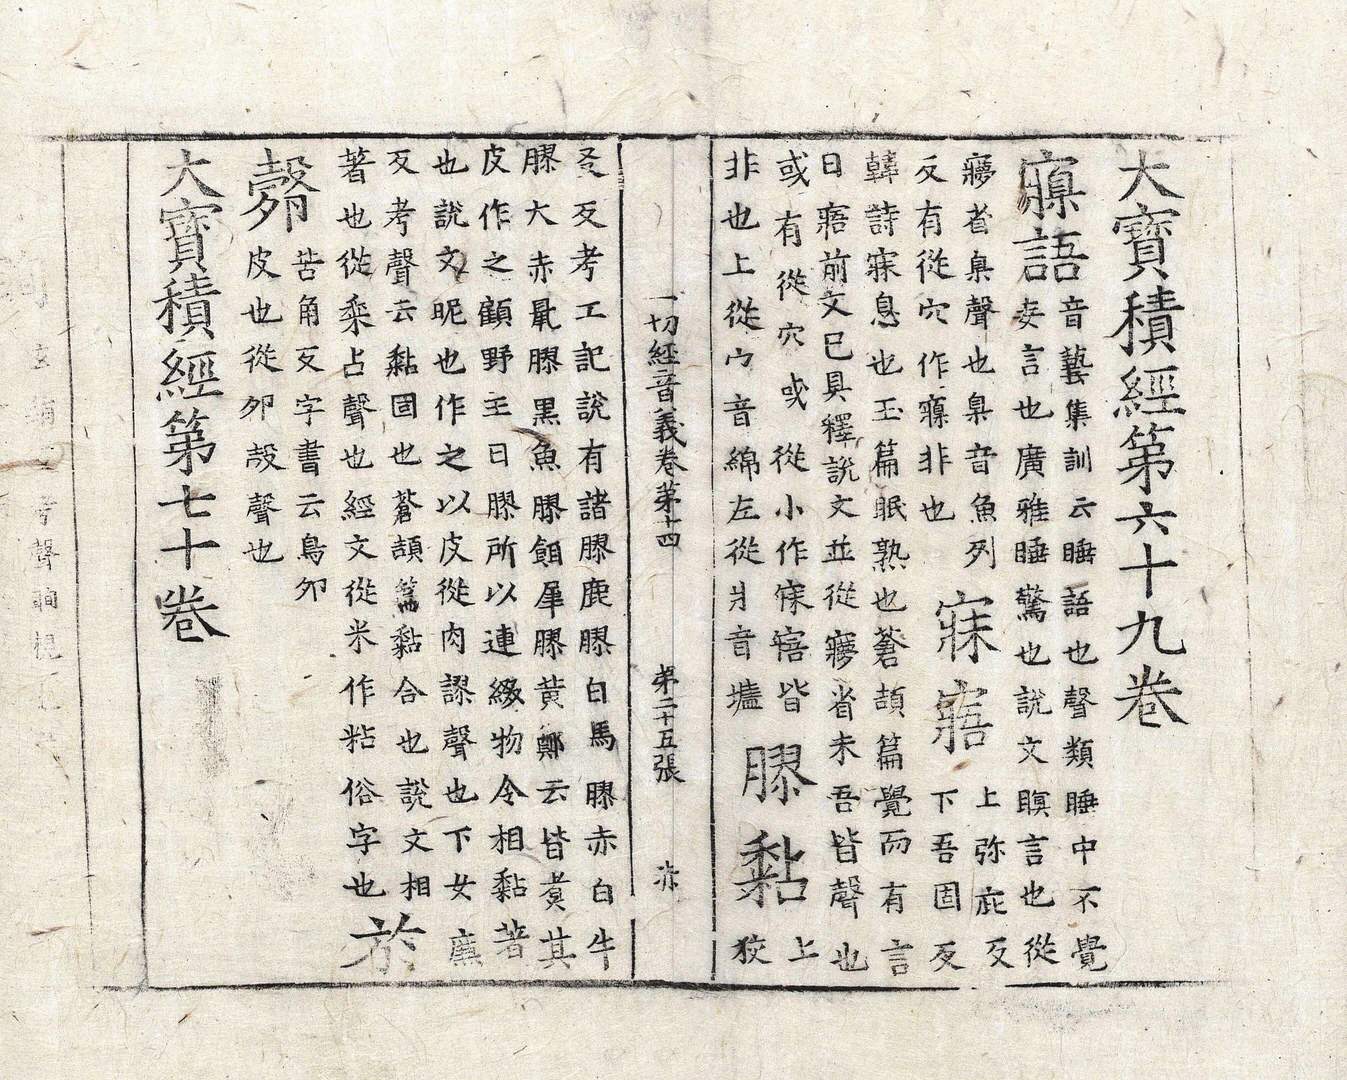 大寶積經第六十九卷
寱語
音藝集訓云睡語也聲類睡中不覺
妄言也廣雅睡驚也說文瞑言也從
㝱省臬聲也臬音魚列
反有從穴作寱非也
寐寤
上弥庇反
下吾固反
韓詩寐息也玉篇眠熟也蒼頡篇覺而有言
曰寤前文已具釋說文並從㝱省未吾皆聲也
或有從穴或從小作寐寤皆
非也上從宀音綿左從爿音墻
膠黏
上
狡
一切經音義卷第十四 第二十五張 赤
爻反考工記說有諸膠鹿膠白馬膠赤白牛
膠火赤鼠膠黑魚膠餌犀膠黃鄭云皆煑其
皮作之顧野王曰膠所以連綴物令相黏著
也說文昵也作之以皮從肉翏聲也下女廉
反考聲云黏固也蒼頡篇黏合也說文相
著也從黍占聲也經文從米作粘俗字也
於
㲉
苦角反字書云鳥卵
皮也從卵㱿聲也
大寶積經第七十卷